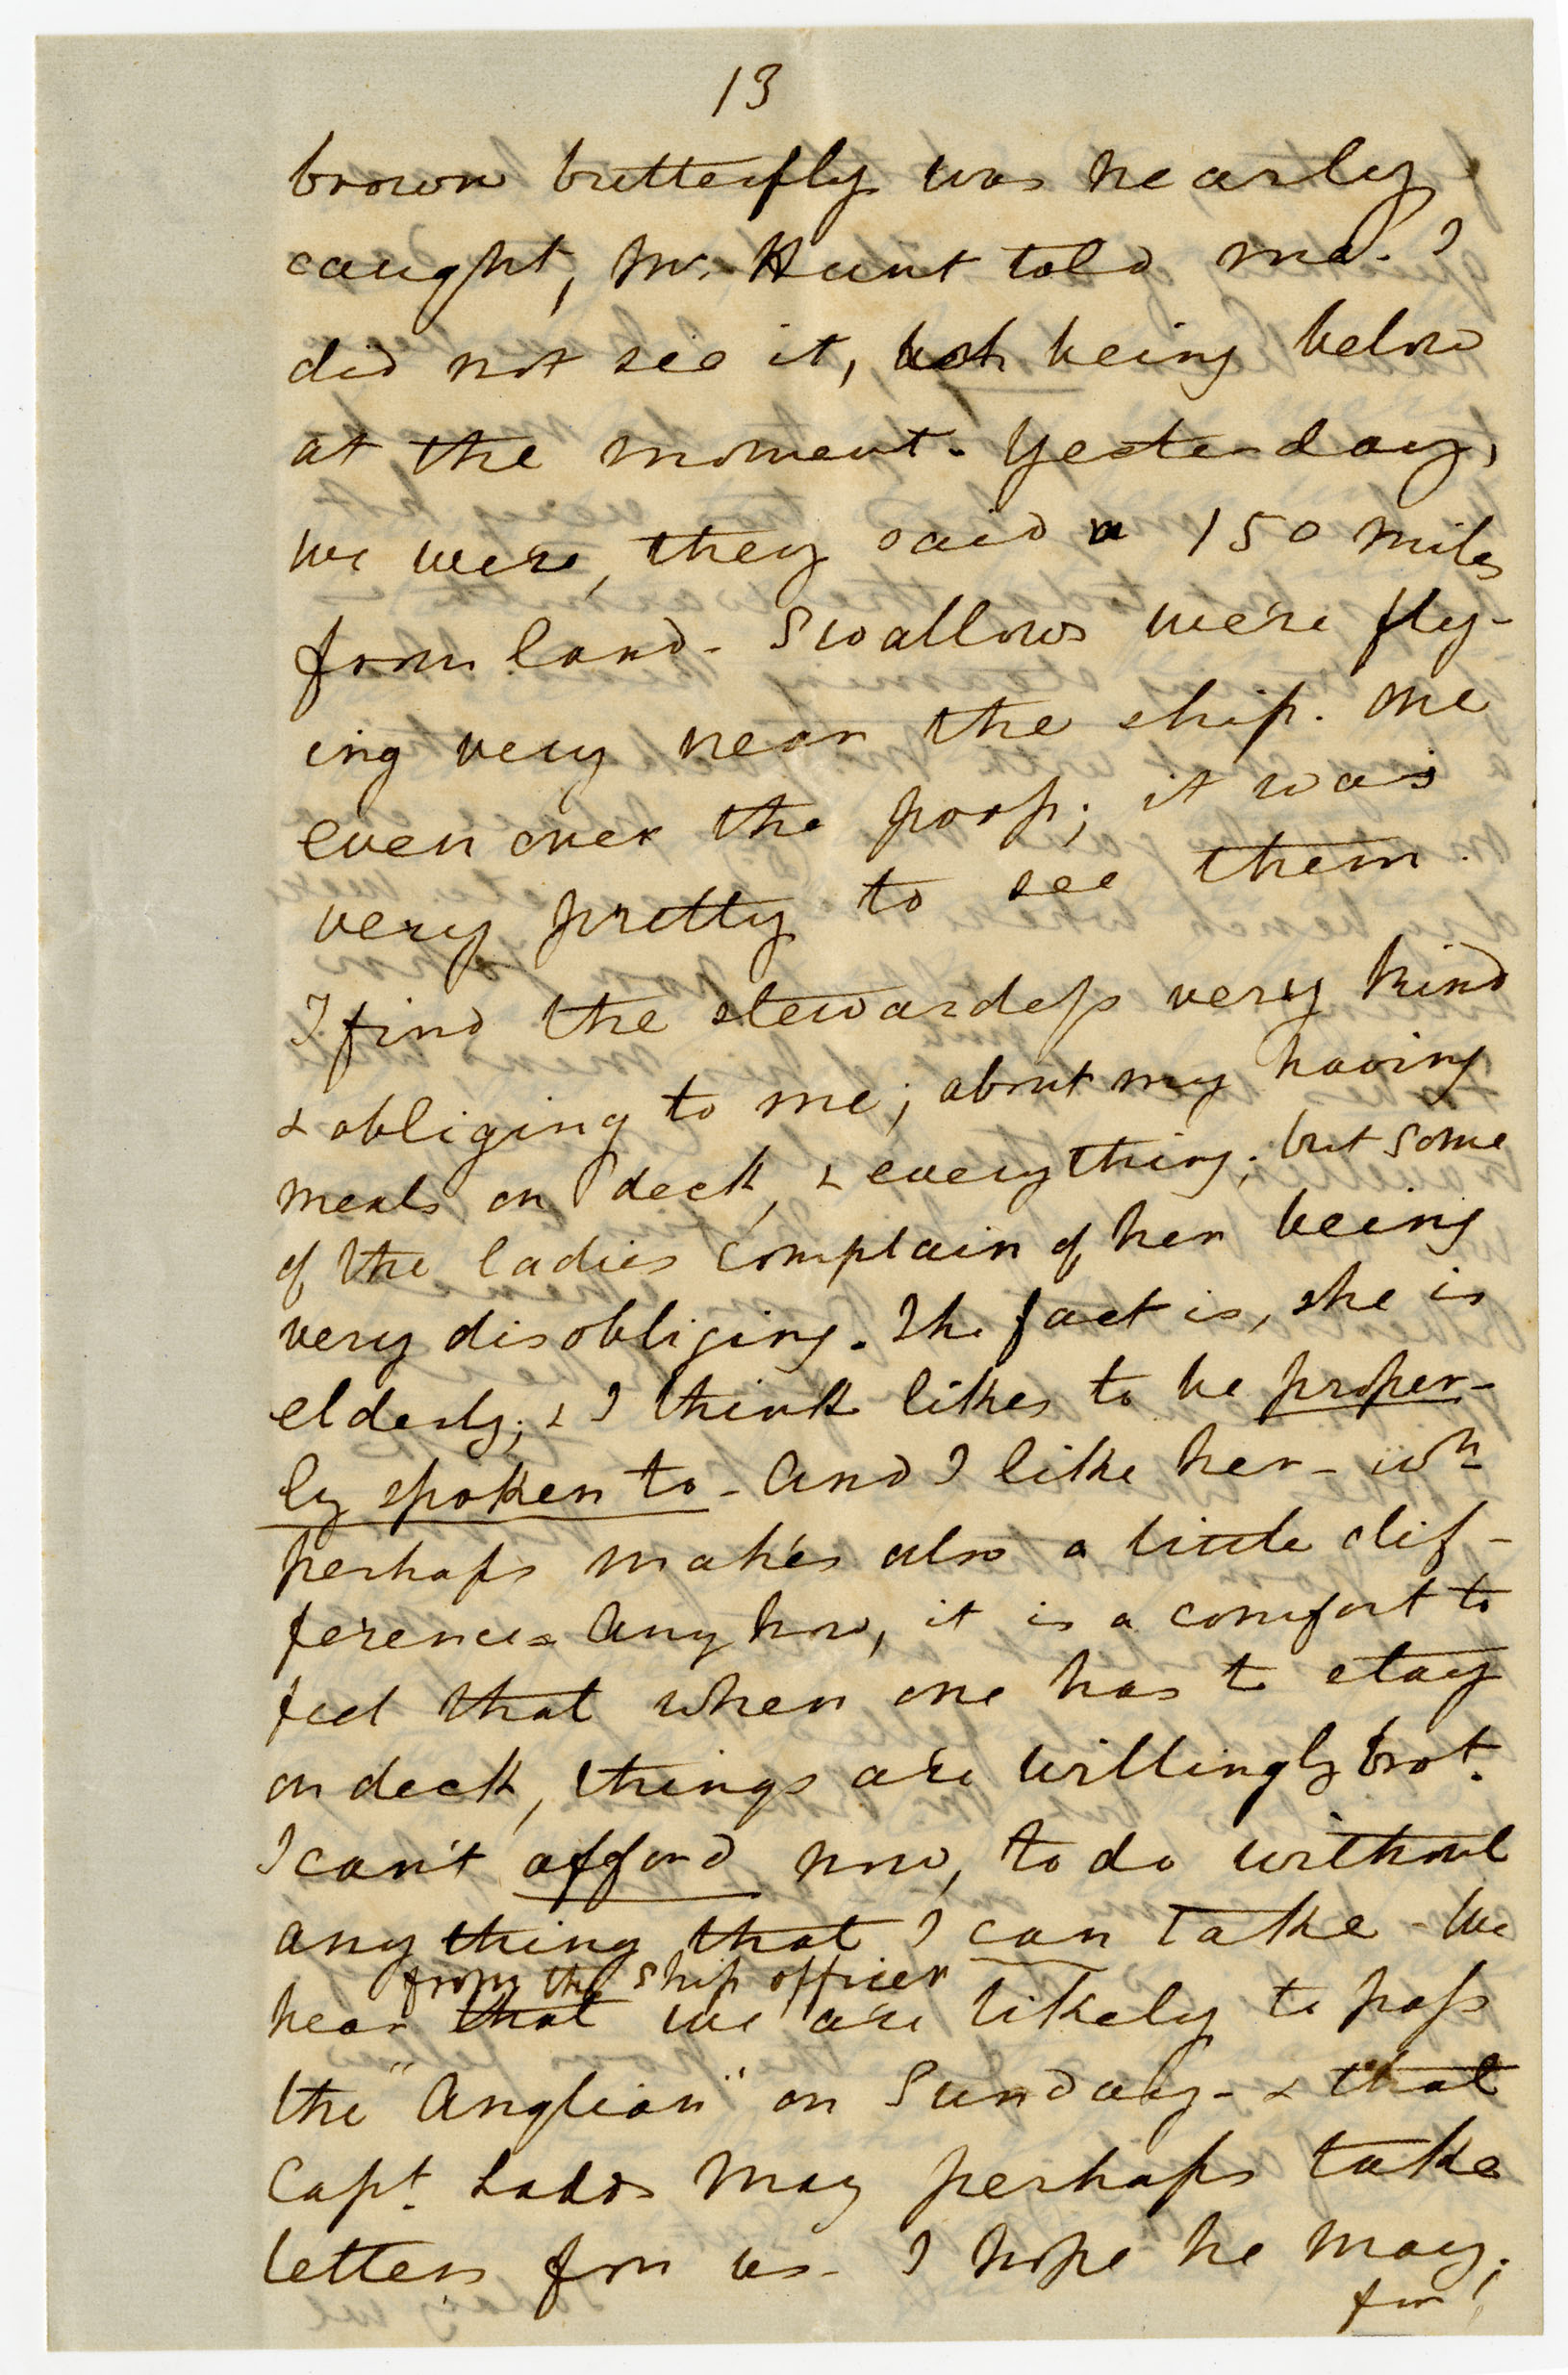 13
brown butterfly was nearly
caught, Mr. Hunt told me. I
did not see it, being below
at the moment. Yesterday,
we were, they said 150 miles
from land - Swallows were fly-
ing very near the ship. One
even over the poop; it was
very pretty to see them.
I find the stewardess very kind
& obliging to me; about my having
meals on deck, & everything; but some
of the ladies complain of her being
very disobliging. The fact is, she is
elderly; & I think likes to be proper-
ly spoken to - And I like her - wh
perhaps makes also a little dif-
ference. Any how, it is a comfort to
feel that when one has to stay
on deck, things are willingly brot.
I can't afford now, to do without
anything that I can take - We
from the ship officer
hear that we are likely to pass
the "Anglian" on Sunday - & that
Capt. may perhaps take
letters from us - I hope he may;
for